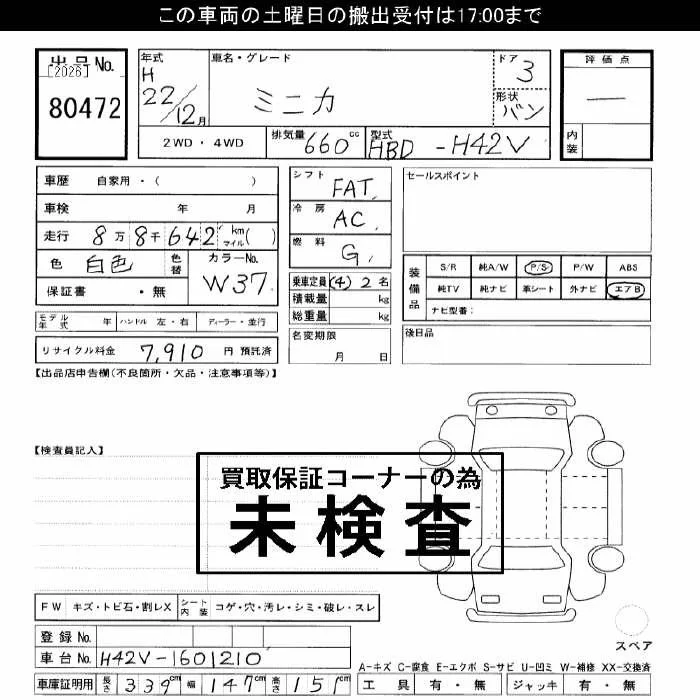 この車両の土曜日の搬出受付は17:00まで
出品No.
[2026]
80472
年式
H
22/12月
車名・グレード
ミニカ
ドア
3
形状
バン
評価点
―
内装
2WD・4WD
排気量 660cc
型式 HBD-H42V
車歴 自家用・( )
車検 年 月
走行 8万8千642 km マイル( )
色 白色 色替 カラーNo. W37
保証書 ・無
シフト FAT
冷房 AC
燃料 G
乗車定員 (4) 2 名
積載量 kg
総重量 kg
セールスポイント
装備品
S/R 純A/W P/S P/W ABS
純TV 純ナビ 革シート 外ナビ エアB
ナビ型番:
モデル年式 年 ハンドル 左・右 ディーラー・並行
リサイクル料金 7,910 円 預託済
名変期限
月 日
後日品
【出品店申告欄(不良箇所・欠品・注意事項等)】
【検査員記入】
買取保証コーナーの為
未検査
FW キズ・トビ石・割レX シート内装 コゲ・穴・汚レ・シミ・破レ・スレ
登録No.
車台No. H42V-1601210
車庫証明用 長さ 339cm 幅 147cm 高さ 151cm
スペア
A-キズ C-腐食 E-エクボ S-サビ U-凹ミ W-補修 XX-交換済
工具 有・無 ジャッキ 有・無